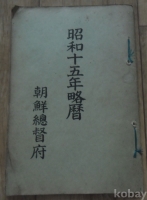 昭和十五年略曆
朝鮮總督府
kobay